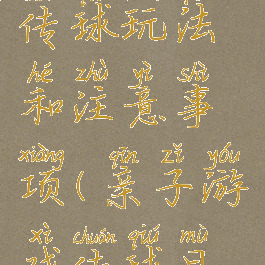 传球玩法
hé zhù yì shì
和注意事
xiàng qīn zǐ yóu
项(亲子游
xì chuán qiú mù
戏传球目